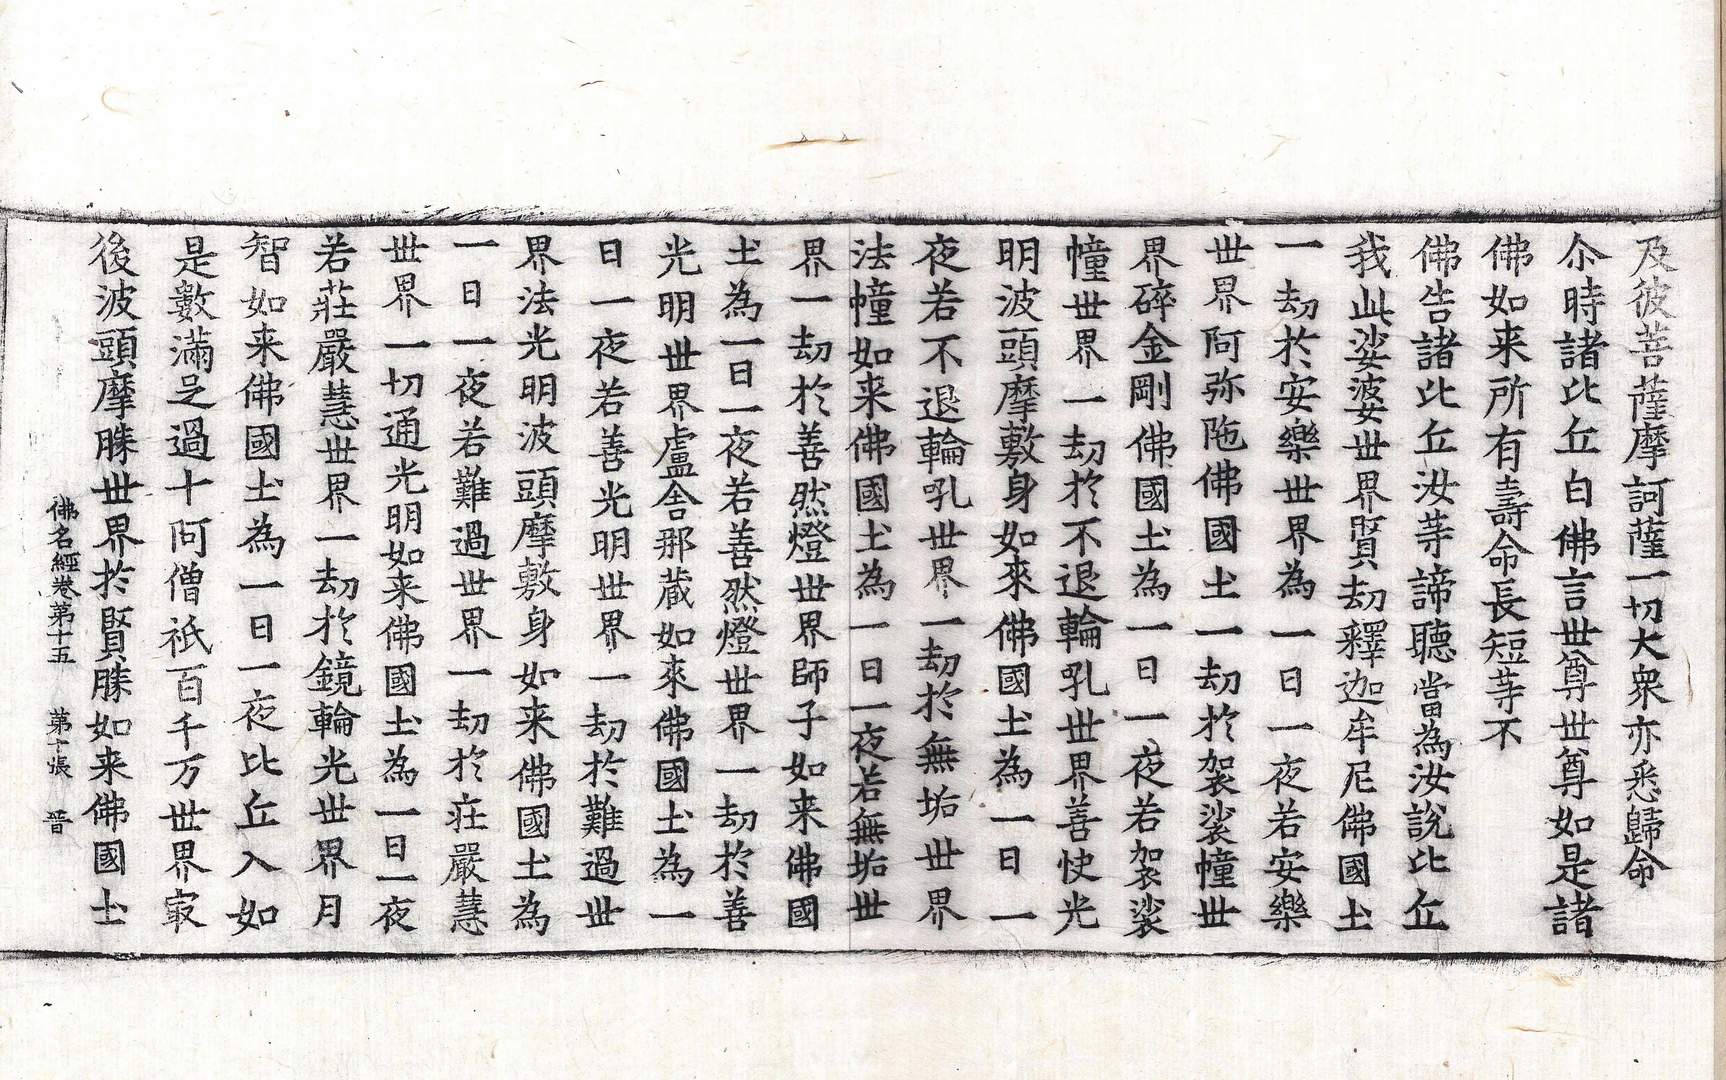 及彼菩薩摩訶薩一切大衆亦悉歸命
尒時諸比丘白佛言世尊世尊如是諸
佛如来所有壽命長短等不
佛告諸比丘汝等諦聽當為汝說比丘
我此娑婆世界賢劫釋迦牟尼佛國土
一劫於安樂世界為一日一夜若安樂
世界阿弥陁佛國土一劫於袈裟幢世
界碎金剛佛國土為一日一夜若袈裟
幢世界一劫於不退輪吼世界善快光
明波頭摩敷身如來佛國土為一日一
夜若不退輪吼世界一劫於無垢世界
法幢如来佛國土為一日一夜若無垢世
界一劫於善然燈世界師子如来佛國
土為一日一夜若善然燈世界一劫於善
光明世界盧舍那蔵如來佛國土為一
日一夜若善光明世界一劫於難過世
界法光明波頭摩敷身如来佛國土為
一日一夜若難過世界一劫於莊嚴慧
世界一切通光明如来佛國土為一日一夜
若莊嚴慧世界一劫於鏡輪光世界月
智如来佛國土為一日一夜比丘入如
是數滿足過十阿僧祇百千万世界㝡
後波頭摩勝世界於賢勝如来佛國土
佛名經卷第十五 第十張 晋